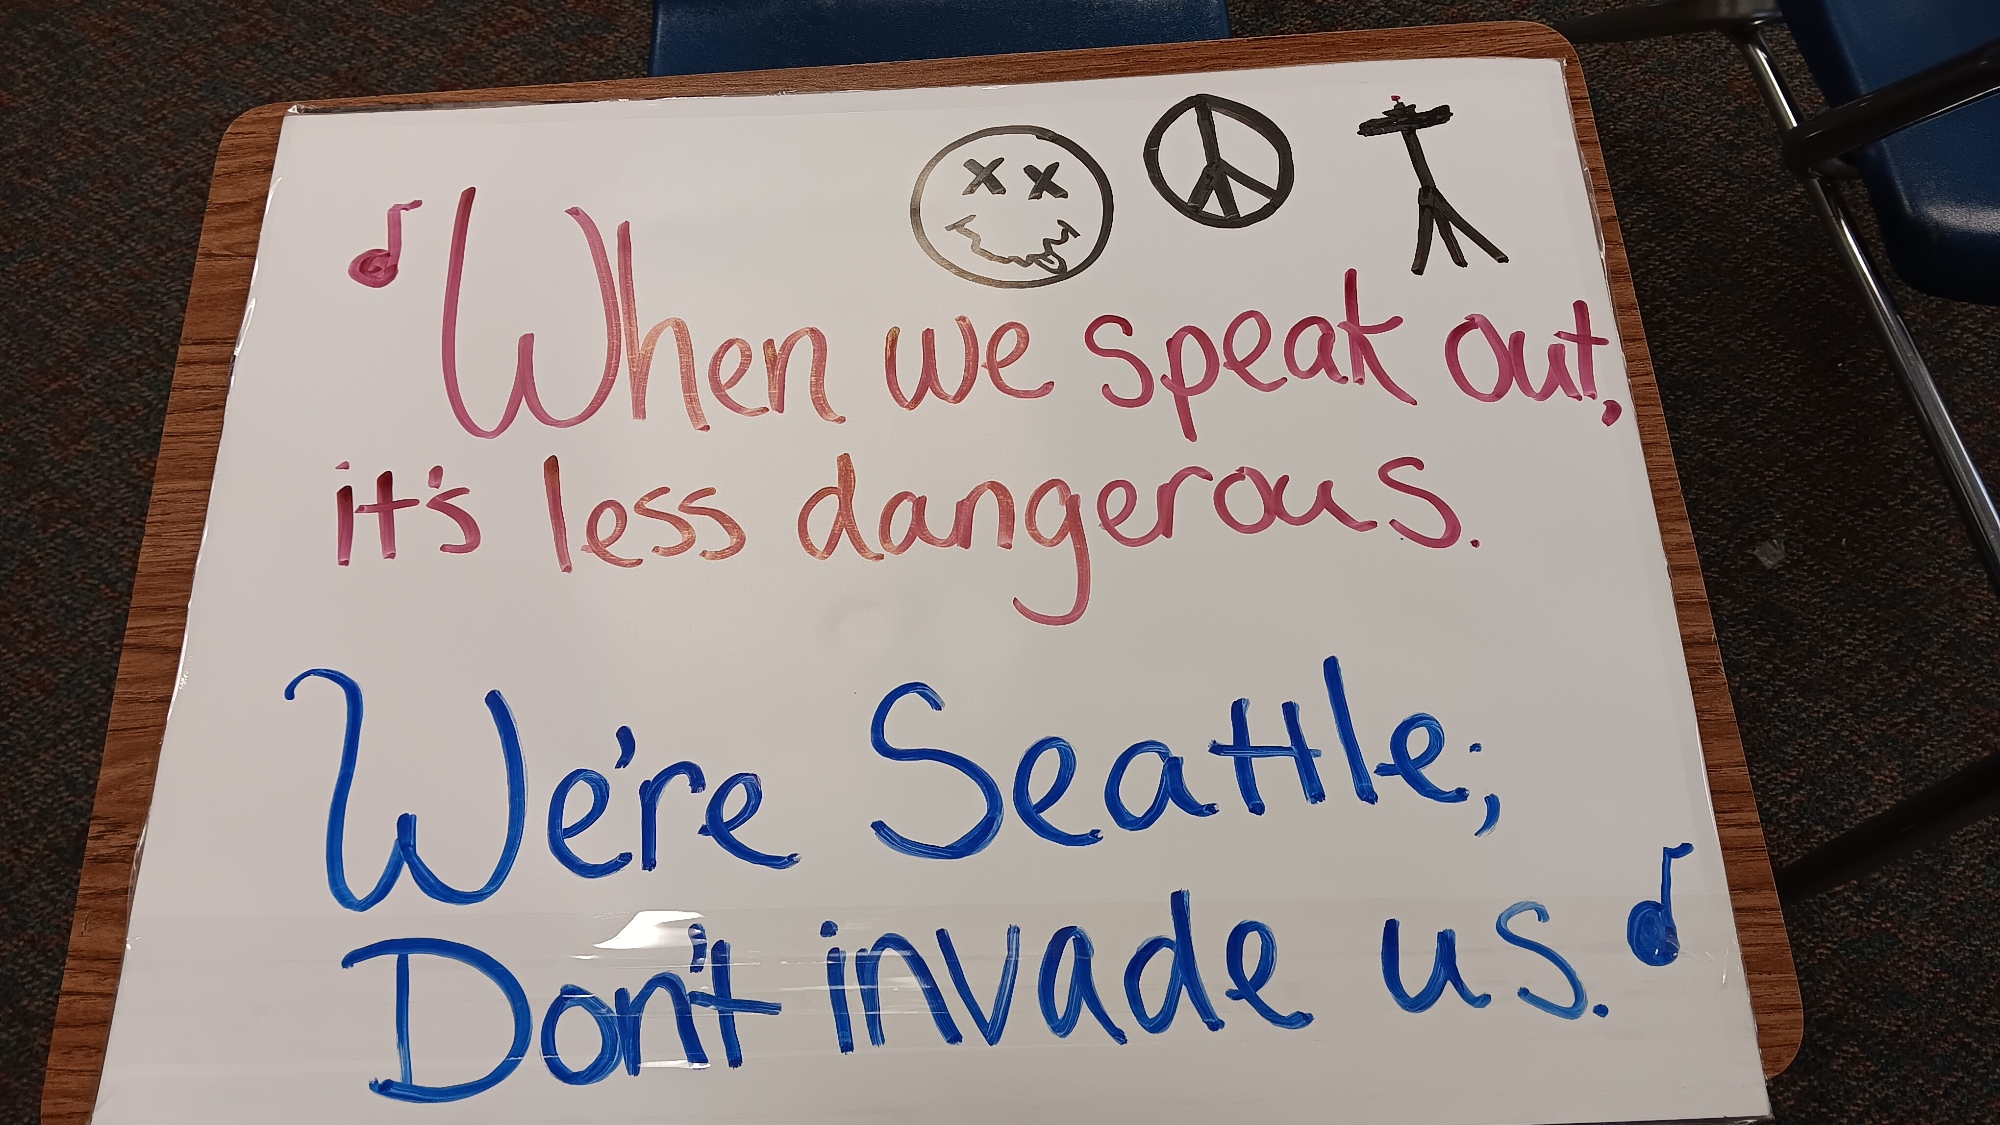 When we speak out,
it's less dangerous.
We're Seattle;
Don't invade us.